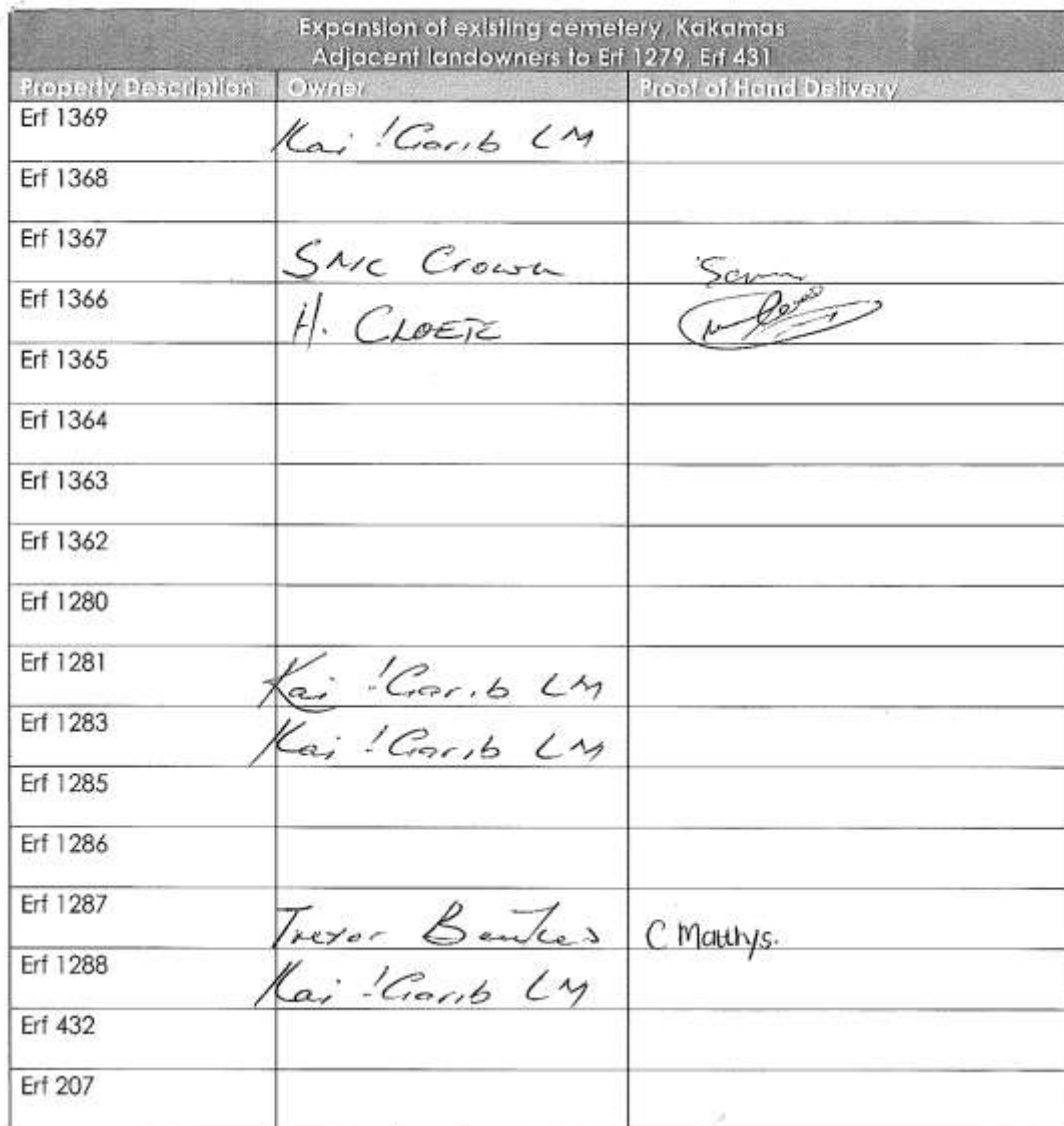 Expansion of existing cemetery, Kakamas
Adjacent landowners to Erf 1279, Erf 431
Property Description Owner Proof of Hand Delivery
Erf 1369 Kai !Garib LM
Erf 1368
Erf 1367 SMC Crown
Erf 1366 H. CLOETE
Erf 1365
Erf 1364
Erf 1363
Erf 1362
Erf 1280
Erf 1281 Kai !Garib LM
Erf 1283 Kai !Garib LM
Erf 1285
Erf 1286
Erf 1287 Trevor C Matthys.
Erf 1288 Kai !Garib LM
Erf 432
Erf 207